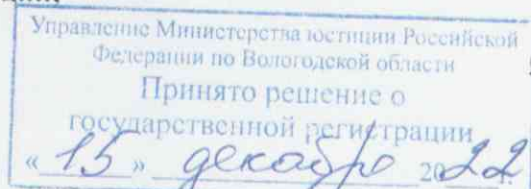 Управление Министерства юстиции Российской
Федерации по Вологодской области
Принято решение о
государственной регистрации
« 15 » декабря 2022 г.